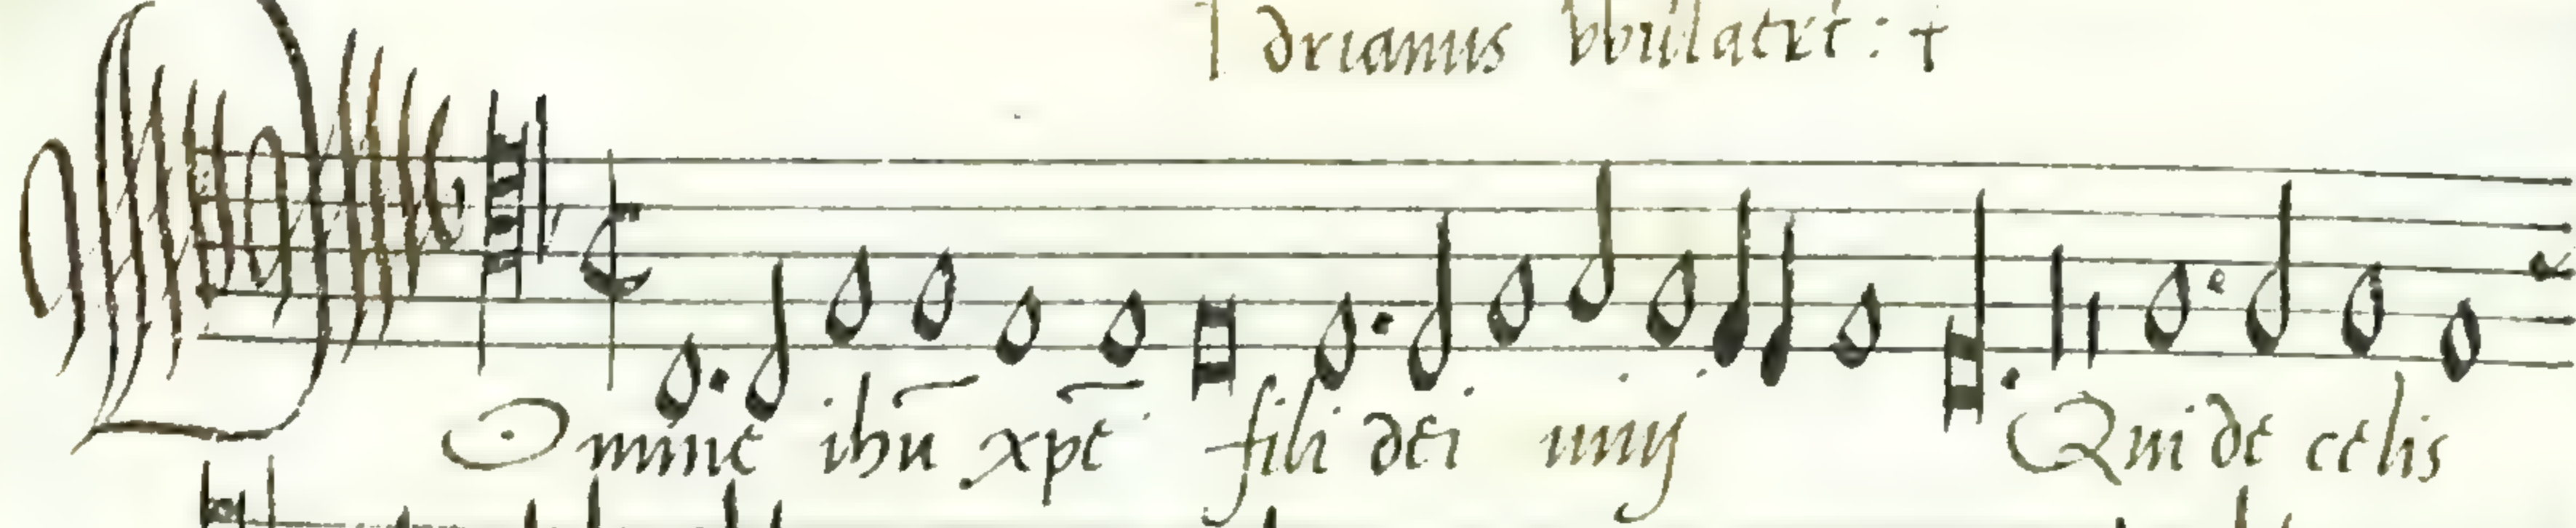 Adrianus vvillaert: +
Domine ihu xpe fili dei uiuj Qui de celis